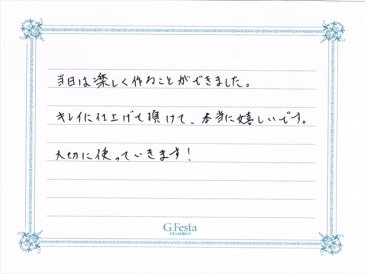 当日は楽しく作ることができました。
キレイに仕上げて頂けて、本当に嬉しいです。
大切に使っていきます！
G.Festa